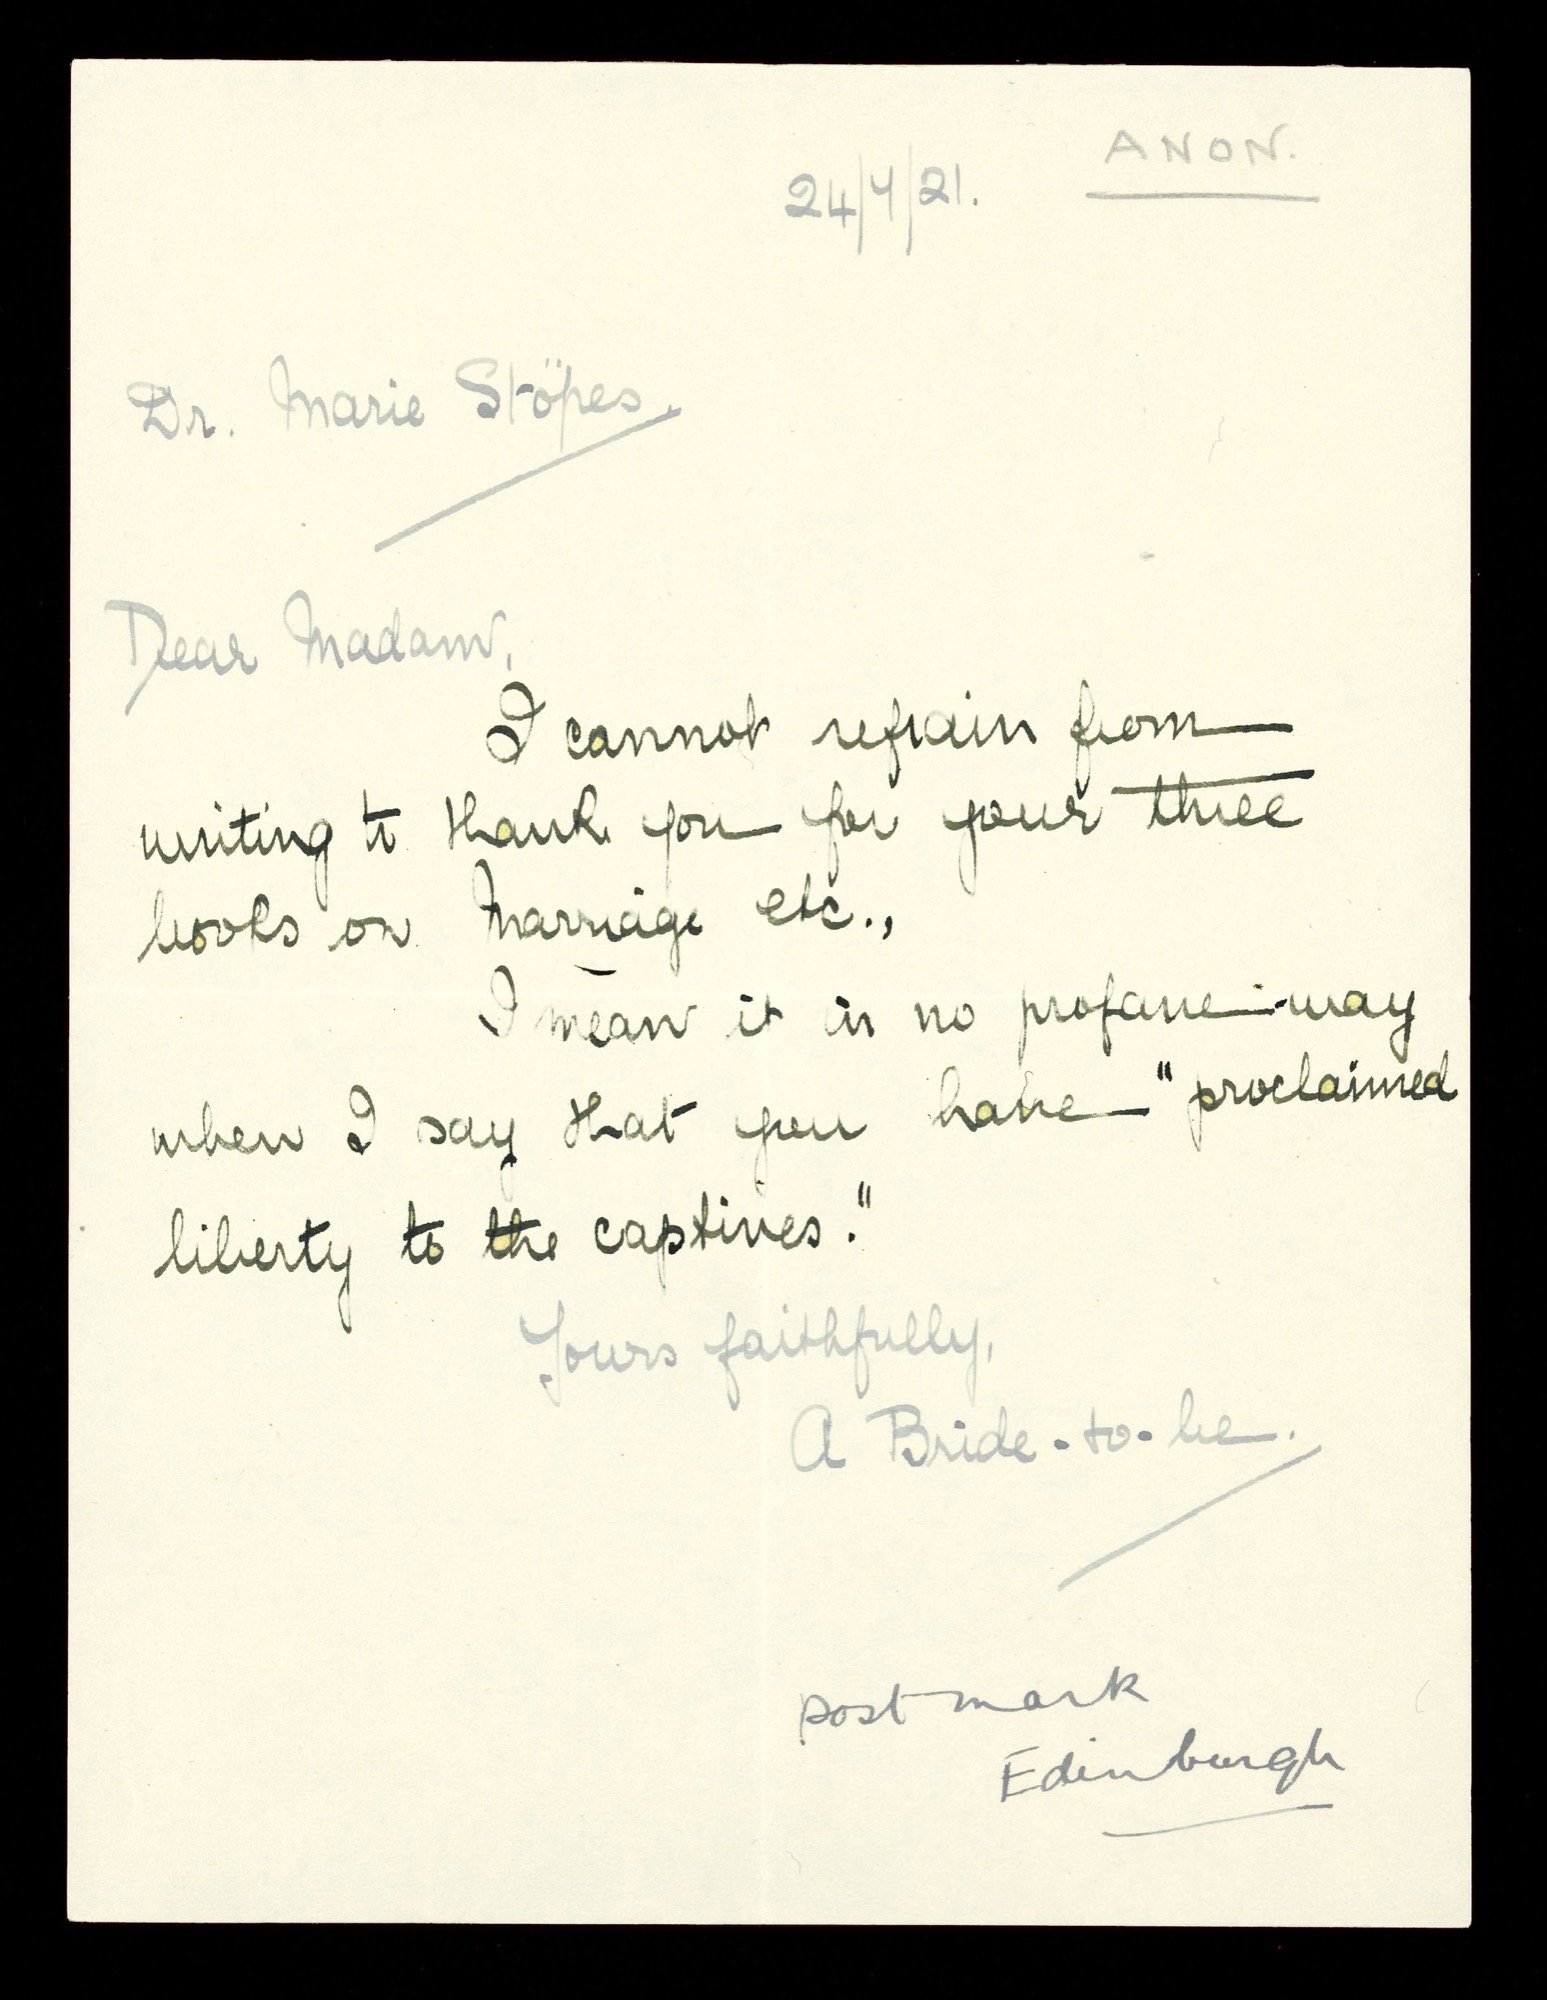 ANON.
24/4/21.
Dr. Marie Stöpes.
Dear Madam,
I cannot refrain from
writing to thank you for your three
books on Marriage etc.,
I mean it in no profane way
when I say that you have "proclaimed
liberty to the captives."
Yours faithfully,
A Bride-to-be.
postmark
Edinburgh